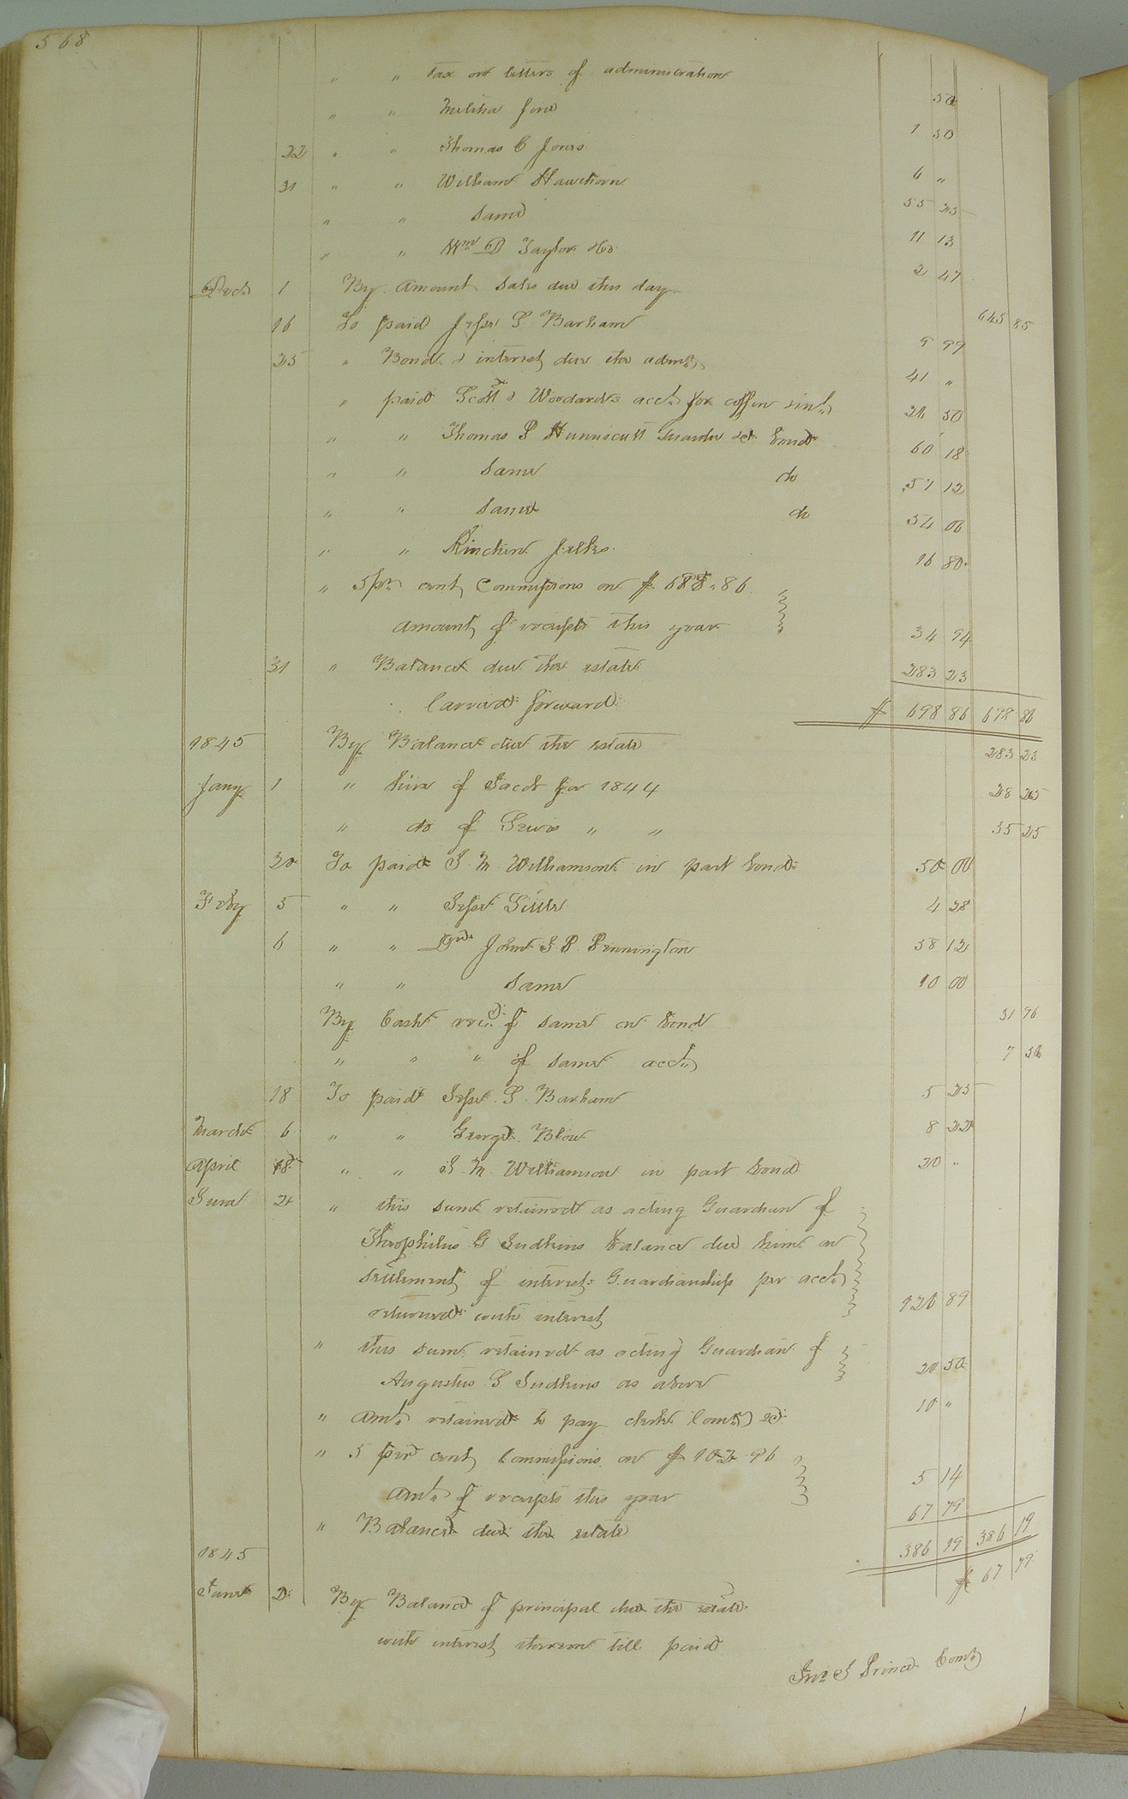 568
" " Tax on letters of administration 50
" " Militia fine 1 50
22 " " Thomas C Jones 6 "
31 " " William Hawthorn 55 25
" " Same 11 13
" " Wm D Taylor do 2 47
Decr 1 By amount sales due this day 645 85
16 To paid Jesse S Barham 9 99
25 " Bond & interest due the admr 41 "
" paid Scott & Woodards acct for coffin
" " Thomas P Hunnicutt Guardn &c bond 60 18
" " Same do 57 12
" " Same do 54 00
" " Rinchen Jelks 16 80
" 5 pr cent Commissions on $ 698.86
amount of receipts this year 34 94
31 " Balance due the estate 283 23
Carried forward $ 698 86 698 86
1845 By Balance due the estate 283 23
Jany 1 " hire of Jacob for 1844 28 25
" do of Lewis " " 35 25
30 To paid J M Williamson in part bond 50 00
Feby 5 " " Jesse Little 4 28
6 " " John S P Pennington 58 12
" " Same 10 00
By Cash recd of same on bond 31 96
" " " of same acct 7 50
18 To paid Jesse S Barham 5 25
March 6 " " George Blow 8 22
April 18 " " J M Williamson in part bond 20 "
June 2 " this sum retained as acting Guardian of
Theophilus G Judkins balance due him on
settlement of Guardianship per acct
returned with interest 126 89
" this sum retained as acting Guardian of
Augustus S Judkins as above 20 50
" amt retained to pay clerk Comr &c 10 "
" 5 per cent Commissions on $ 102.96
amt of receipts this year 5 14
" Balance due the estate 67 79
386 19 386 19
1845 $ 67 79
June 2 By Balance of principal due the estate
with interest thereon till paid
Jno J Prince Comr